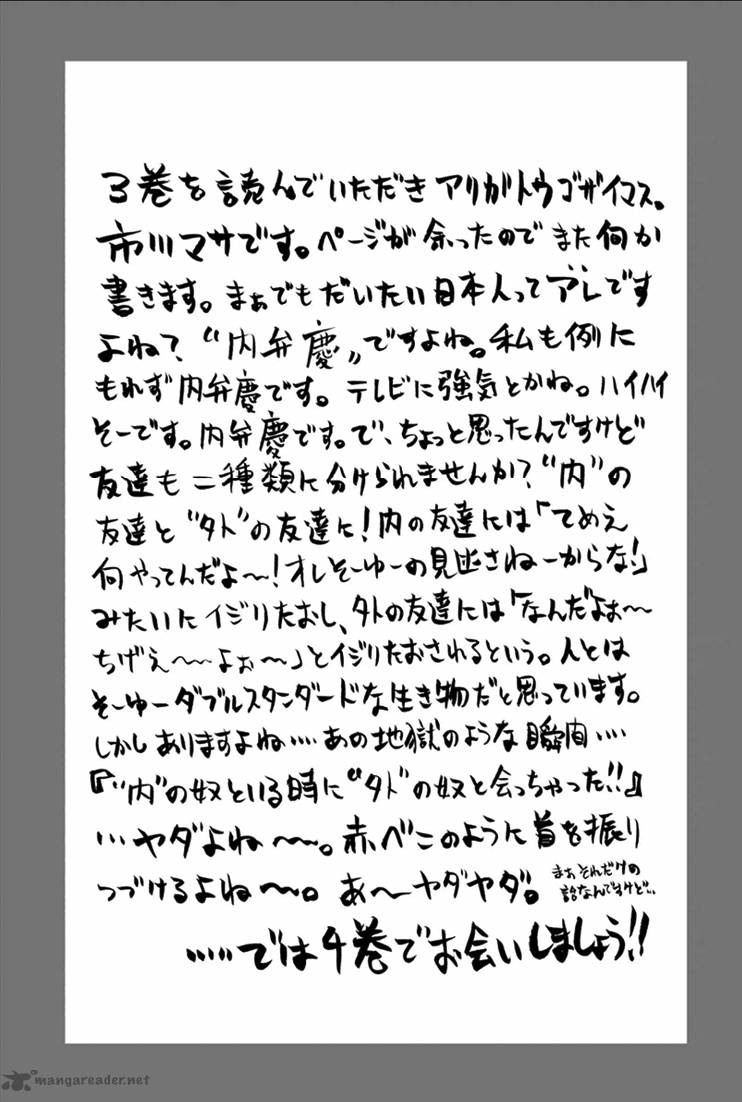 3巻を読んでいただきアリガトウゴザイマス。
市川マサです。ページが余ったのでまた何か
書きます。まぁでもだいたい日本人ってアレです
よね？“内弁慶”ですよね。私も例に
もれず内弁慶です。テレビに強気とかね。ハイハイ
そーです。内弁慶です。で、ちょっと思ったんですけど
友達も二種類に分けられませんか？“内”の
友達と“外”の友達に！内の友達には「てめえ
何やってんだよ～！オレそーゆーの見逃さねーからな！」
みたいにイジりたおし、外の友達には「なんだよぉ～
ちげぇ～～よぉ～」とイジりたおされるという。人とは
そーゆーダブルスタンダードな生き物だと思っています。
しかしありますよね‥‥あの地獄のような瞬間‥‥
『“内”の奴といる時に“外”の奴と会っちゃった!!』
‥ヤダよね～～。赤べこのように首を振り
つづけるよね～～。あ～ヤダヤダ。
まぁそれだけの
話なんですけど‥
‥‥‥では4巻でお会いしましょう!!
mangareader.net